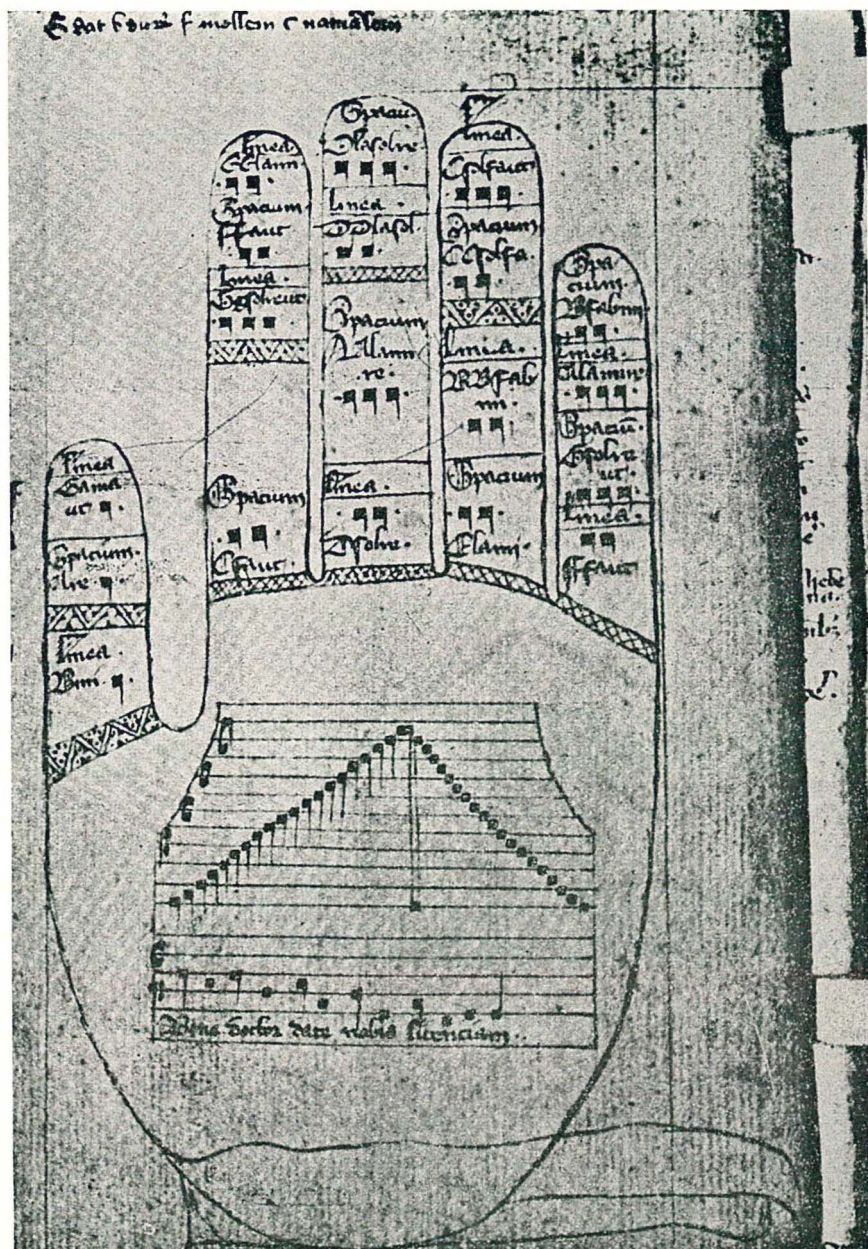 G dat b duru f mollem C naturalem
linea
Gama
ut
Spacium
Are
linea
Bmi
linea
EElami
Spacium
ffaut
linea
Gsolreut
Spacium
Cfaut
Spaciu
Dlasolre
linea
DDlasol
Spacium
Alami
re
linea
Dsolre
linea
Csolfaut
Spacium
CCsolfa
linea
BBfab
mi
Spacium
Elami
Spa
cium
Bfabmi
linea
Alamire
Spaciu
Gsolre
ut
linea
ffaut
Bone doctor date nobis licenciam